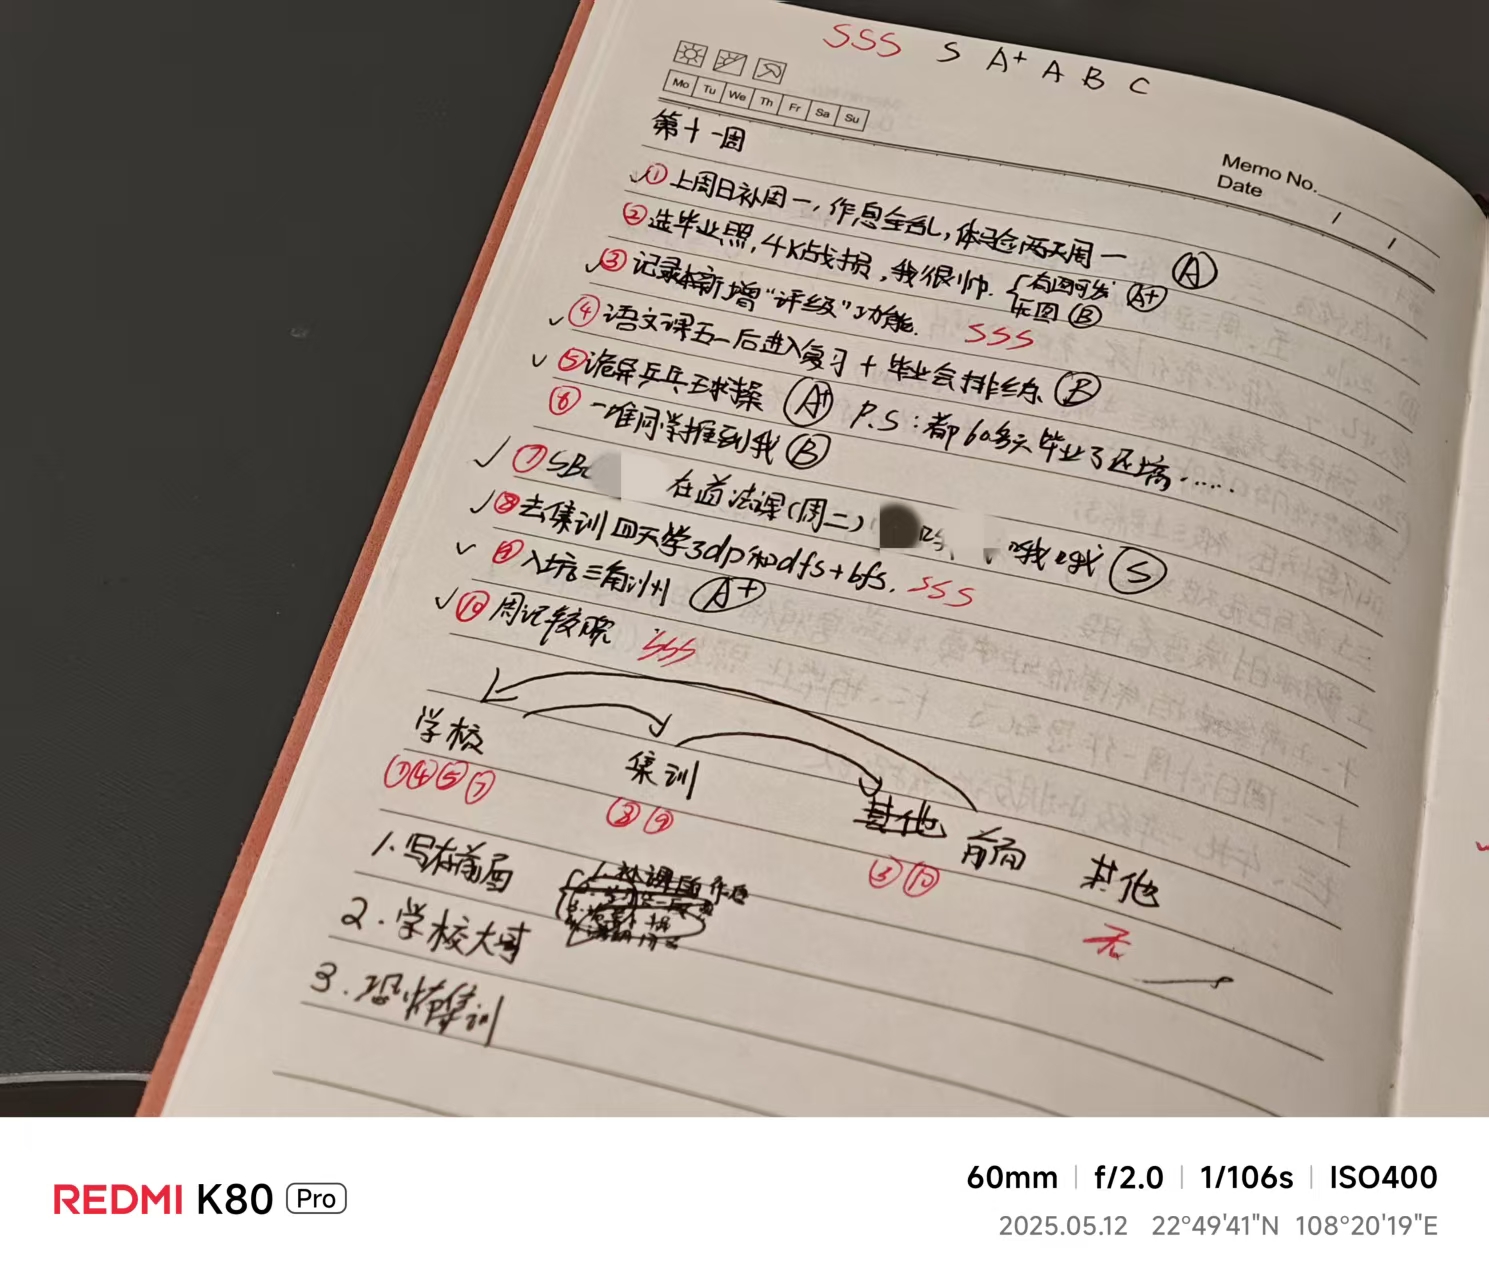 SSS S A+ A B C
Mo Tu We Th Fr Sa Su
Memo No.
Date / /
第十一周
①上周日补周一,作息全乱,体验两天周一 A
②选毕业照,4K战损,我很帅. 有图可发 A+
无图 B
③记录本新增“评级”功能. SSS
④语文课五一后进入复习+毕业会排练 B
⑤诡异乒乓球操 A+ P.S:都60多天毕业了还搞……
⑥一堆同学推到我 B
⑦SB 在道法课(周二) 哦哦 S
⑧去集训四天学3dp和dfs+bfs. SSS
⑨入坑三角洲 A+
⑩周记较晚 SSS
学校 集训 其他 前面 其他
①④⑤⑦ ⑧⑨ ③⑩ 无
1.写在前面
2.学校大事
3.恐怖集训
REDMI K80 Pro
60mm | f/2.0 | 1/106s | ISO400
2025.05.12 22°49'41"N 108°20'19"E